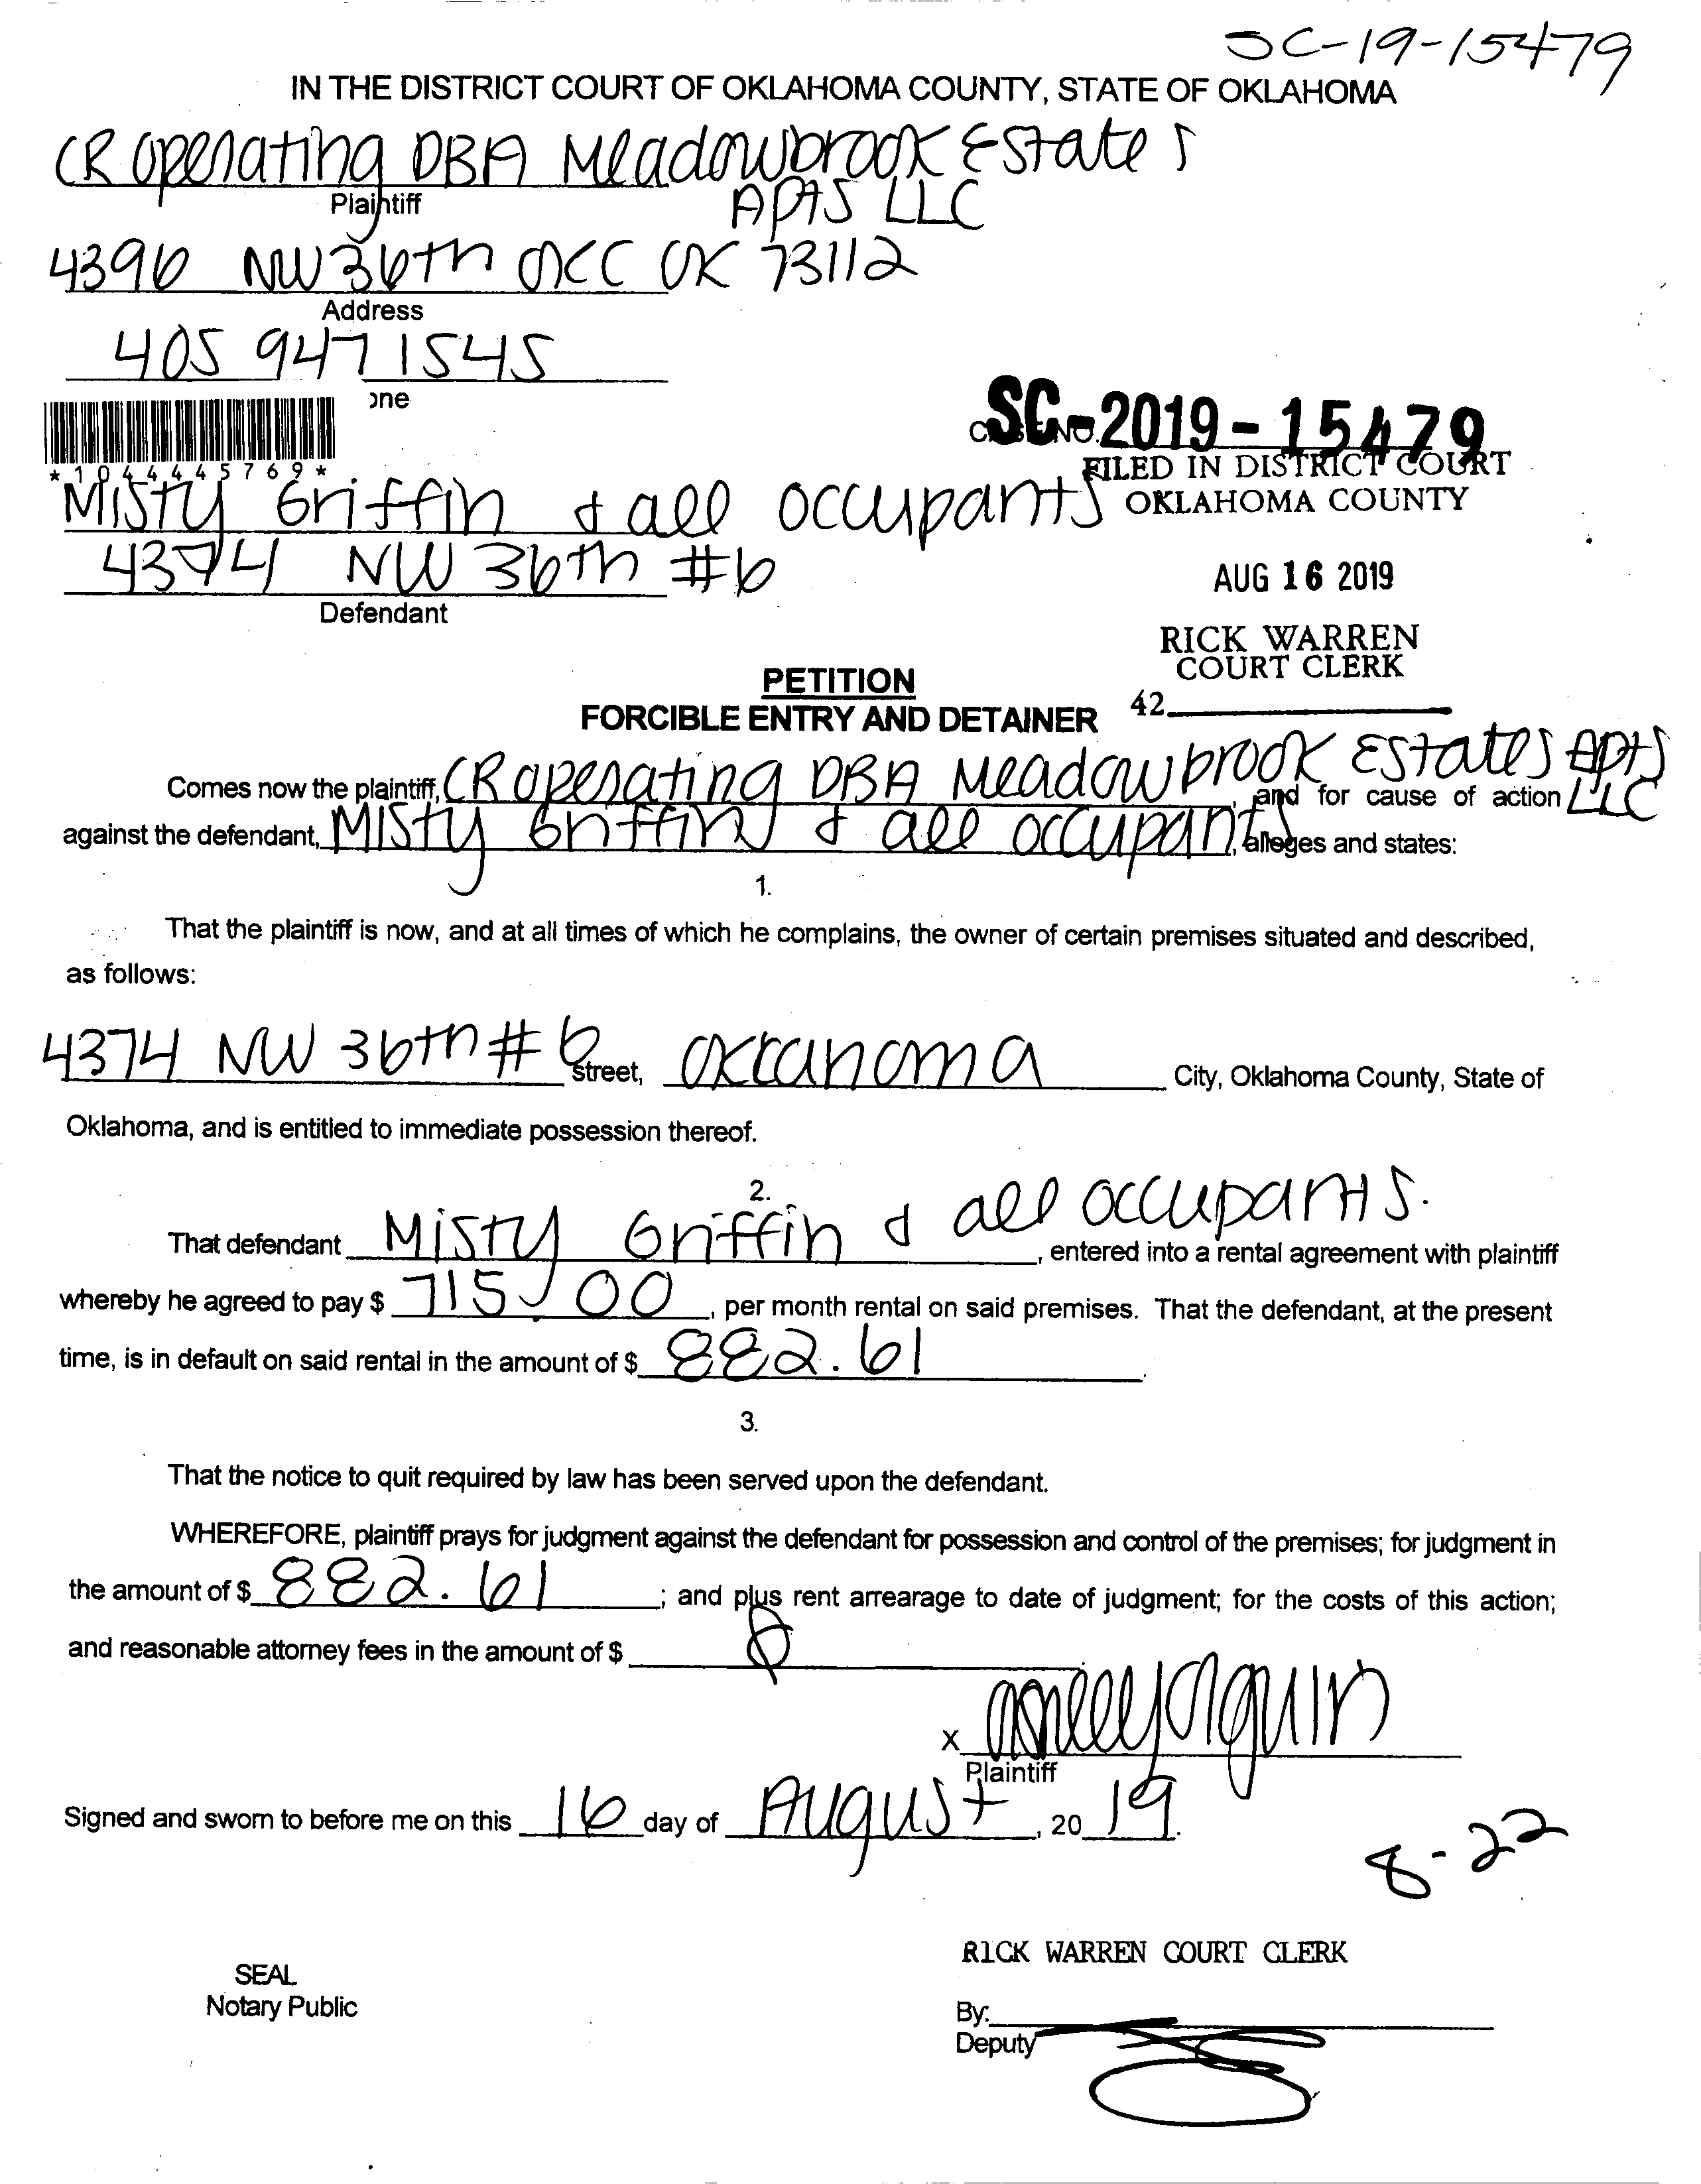 SC-19-15479
IN THE DISTRICT COURT OF OKLAHOMA COUNTY, STATE OF OKLAHOMA
CR Operating DBA Meadowbrook Estates
Plaintiff
APTS LLC
4396 NW 36th OKC OK 73112
Address
405 947 1545
one
SC-2019-15479
NO.
*1044445769*
FILED IN DISTRICT COURT
OKLAHOMA COUNTY
Misty Griffin & all occupants
4374 NW 36th #6
Defendant
AUG 16 2019
RICK WARREN
COURT CLERK
42
PETITION
FORCIBLE ENTRY AND DETAINER
Comes now the plaintiff, CR Operating DBA Meadowbrook Estates Apts LLC, and for cause of action
against the defendant, Misty Griffin & all occupants, alleges and states:
1.
That the plaintiff is now, and at all times of which he complains, the owner of certain premises situated and described,
as follows:
4374 NW 36th # 6 Street, Oklahoma City, Oklahoma County, State of
Oklahoma, and is entitled to immediate possession thereof.
2.
That defendant Misty Griffin & all occupants., entered into a rental agreement with plaintiff
whereby he agreed to pay $ 715.00, per month rental on said premises. That the defendant, at the present
time, is in default on said rental in the amount of $ 882.61.
3.
That the notice to quit required by law has been served upon the defendant.
WHEREFORE, plaintiff prays for judgment against the defendant for possession and control of the premises; for judgment in
the amount of $ 882.61; and plus rent arrearage to date of judgment; for the costs of this action;
and reasonable attorney fees in the amount of $
X
Plaintiff
Signed and sworn to before me on this 16 day of August, 2019.
8-22
RICK WARREN COURT CLERK
SEAL
Notary Public
By:
Deputy